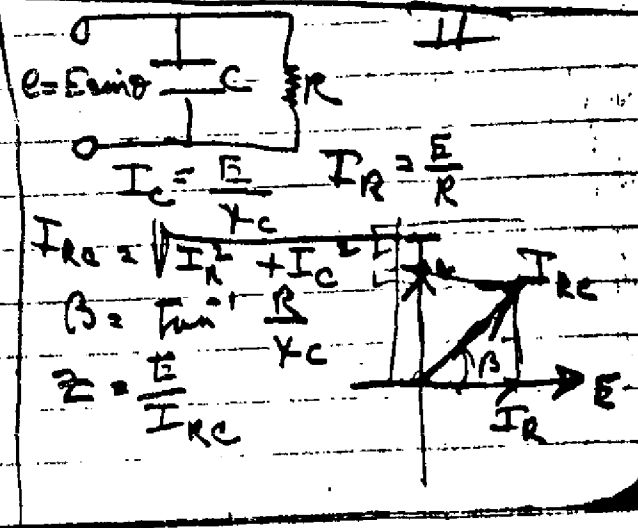 II
e = E sin θ
C
R
I_C = E/X_C I_R = E/R
I_RC = √(I_R² + I_C²)
β = Tan⁻¹ R/X_C
Z = E/I_RC
I_RC
β
E
I_R